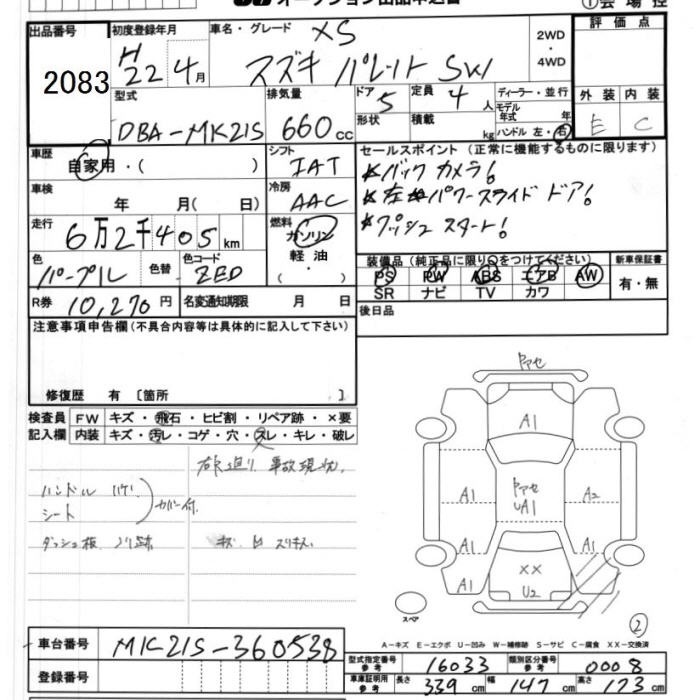 オークション出品申込書
① 会場控
出品番号
2083
初度登録年月
H22 4月
車名・グレード XS
スズキ パレット SW
2WD
・
4WD
評価点
外装 内装
E C
型式
DBA-MK21S
排気量
660 cc
ドア 5
形状
定員 4 人
積載 kg
ディーラー・並行
モデル年式 年
ハンドル 左・右
車歴
自家用・( )
シフト
IAT
セールスポイント(正常に機能するものに限ります)
*バック カメラ!
*左 パワースライド ドア!
*プッシュ スタート!
車検
年 月( 日)
冷房
AAC
走行
6万2千405 km
燃料
ガソリン
軽油
・
色
パープル
色替
色コード
ZED
装備品(純正品に限り○をつけてください)
PS PW ABS エアB AW
SR ナビ TV カワ
新車保証書
有・無
R券 10,270円
名変通知期限 月 日
後日品
注意事項申告欄(不具合内容等は具体的に記入して下さい)
修復歴 有 〔箇所 〕
検査員記入欄
FW キズ・飛石・ヒビ割・リペア跡・×要
内装 キズ・汚レ・コゲ・穴・スレ・キレ・破レ
事故現状.
ハンドル ハゲ
シート
カバー付
ダッシュ板 ノリ跡
キズ 凹 スリキズ
トアセ
A1
A1
トアセ
UA1
A2
A1
A1
A1
××
U2
スペア
②
A-キズ E-エクボ U-凹み W-補修跡 S-サビ C-腐食 XX-交換済
車台番号 MK21S-360538
型式指定番号 参考 16033 類別区分番号 参考 0008
登録番号
車庫証明用 参考 長さ 339 cm 幅 147 cm 高さ 173 cm